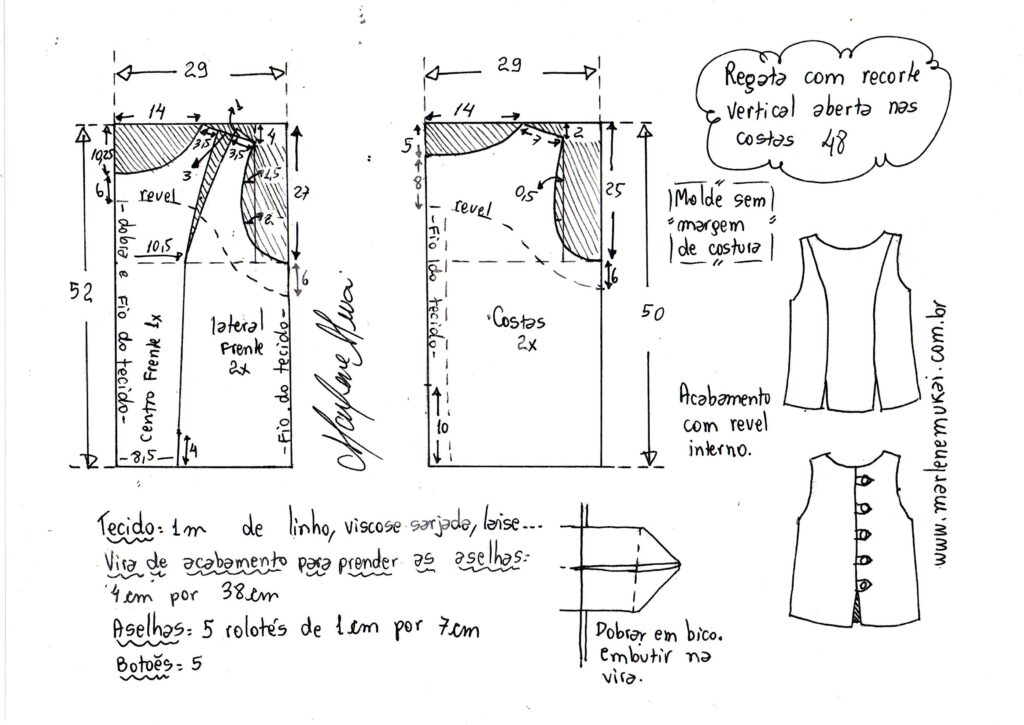 Regata com recorte
vertical aberta nas
costas 48
Molde sem
margem
de costura
29
14
1
3,5
3,5
4
3
10,25
6
revel
4,5
2
27
10,5
6
52
-dobra e Fio do tecido-
Centro Frente 1x
lateral
Frente
2x
-Fio do tecido-
8,5
4
Marlene Mukai
29
14
7
2
5
8
0,5
25
revel
6
-Fio do tecido-
Costas
2x
50
10
Acabamento
com revel
interno.
www.marlenemukai.com.br
Tecido: 1m de linho, viscose sarjada, laise...
Vira de acabamento para prender as aselhas:
4cm por 38cm
Aselhas: 5 rolotés de 1cm por 7cm
Botões: 5
Dobrar em bico.
embutir na
vira.